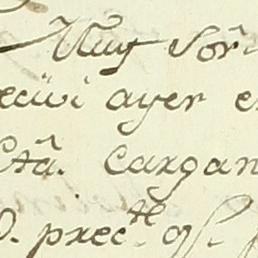 Muy Sor.
ecivi ayer e
Cta. cargan
D. prec.te